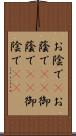 お陰で お
蔭で 御
陰で 御